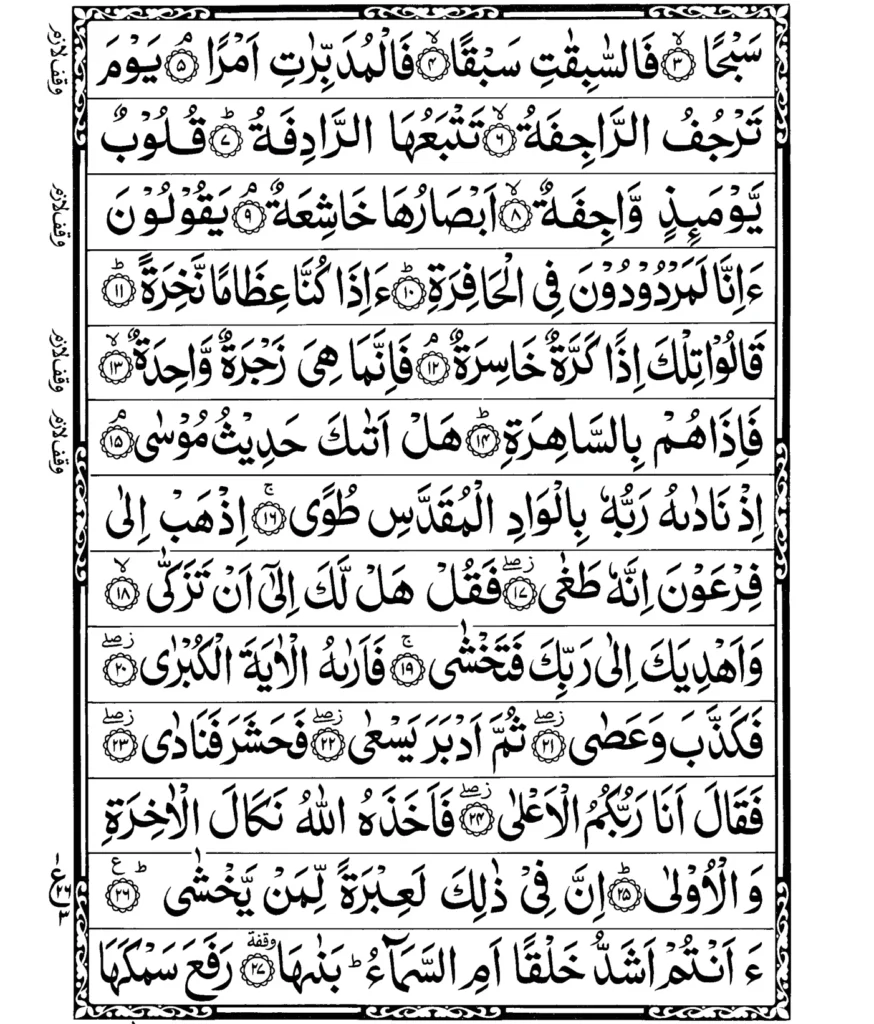 سَبْحًا ۙ﴿۳﴾ فَالسّٰبِقٰتِ سَبْقًا ۙ﴿۴﴾ فَالْمُدَبِّرٰتِ اَمْرًا ۘ﴿۵﴾ يَوْمَ
تَرْجُفُ الرَّاجِفَةُ ۙ﴿۶﴾ تَتْبَعُهَا الرَّادِفَةُ ؕ﴿۷﴾ قُلُوْبٌ
يَّوْمَىِٕذٍ وَّاجِفَةٌ ۙ﴿۸﴾ اَبْصَارُهَا خَاشِعَةٌ ۘ﴿۹﴾ يَقُوْلُوْنَ
ءَاِنَّا لَمَرْدُوْدُوْنَ فِى الْحَافِرَةِ ؕ﴿۱۰﴾ ءَاِذَا كُنَّا عِظَامًا نَّخِرَةً ؕ﴿۱۱﴾
قَالُوْا تِلْكَ اِذًا كَرَّةٌ خَاسِرَةٌ ۘ﴿۱۲﴾ فَاِنَّمَا هِىَ زَجْرَةٌ وَّاحِدَةٌ ۙ﴿۱۳﴾
فَاِذَا هُمْ بِالسَّاهِرَةِ ؕ﴿۱۴﴾ هَلْ اَتٰىكَ حَدِيْثُ مُوْسٰى ۘ﴿۱۵﴾
اِذْ نَادٰىهُ رَبُّهٗ بِالْوَادِ الْمُقَدَّسِ طُوًى ۚ﴿۱۶﴾ اِذْهَبْ اِلٰى
فِرْعَوْنَ اِنَّهٗ طَغٰى ۖز﴿۱۷﴾ فَقُلْ هَلْ لَّكَ اِلٰٓى اَنْ تَزَكّٰى ۙ﴿۱۸﴾
وَاَهْدِيَكَ اِلٰى رَبِّكَ فَتَخْشٰى ۚ﴿۱۹﴾ فَاَرٰىهُ الْاٰيَةَ الْكُبْرٰى ۖز﴿۲۰﴾
فَكَذَّبَ وَعَصٰى ۖز﴿۲۱﴾ ثُمَّ اَدْبَرَ يَسْعٰى ۖز﴿۲۲﴾ فَحَشَرَ فَنَادٰى ۖز﴿۲۳﴾
فَقَالَ اَنَا رَبُّكُمُ الْاَعْلٰى ۖز﴿۲۴﴾ فَاَخَذَهُ اللّٰهُ نَكَالَ الْاٰخِرَةِ
وَالْاُوْلٰى ؕ﴿۲۵﴾ اِنَّ فِىْ ذٰلِكَ لَعِبْرَةً لِّمَنْ يَّخْشٰى ؕع﴿۲۶﴾
ءَاَنْتُمْ اَشَدُّ خَلْقًا اَمِ السَّمَآءُ ؕ بَنٰىهَا وقفة﴿۲۷﴾ رَفَعَ سَمْكَهَا
وقف لازم
وقف لازم
وقف لازم
وقف لازم
۱
ع
۲۶
۳